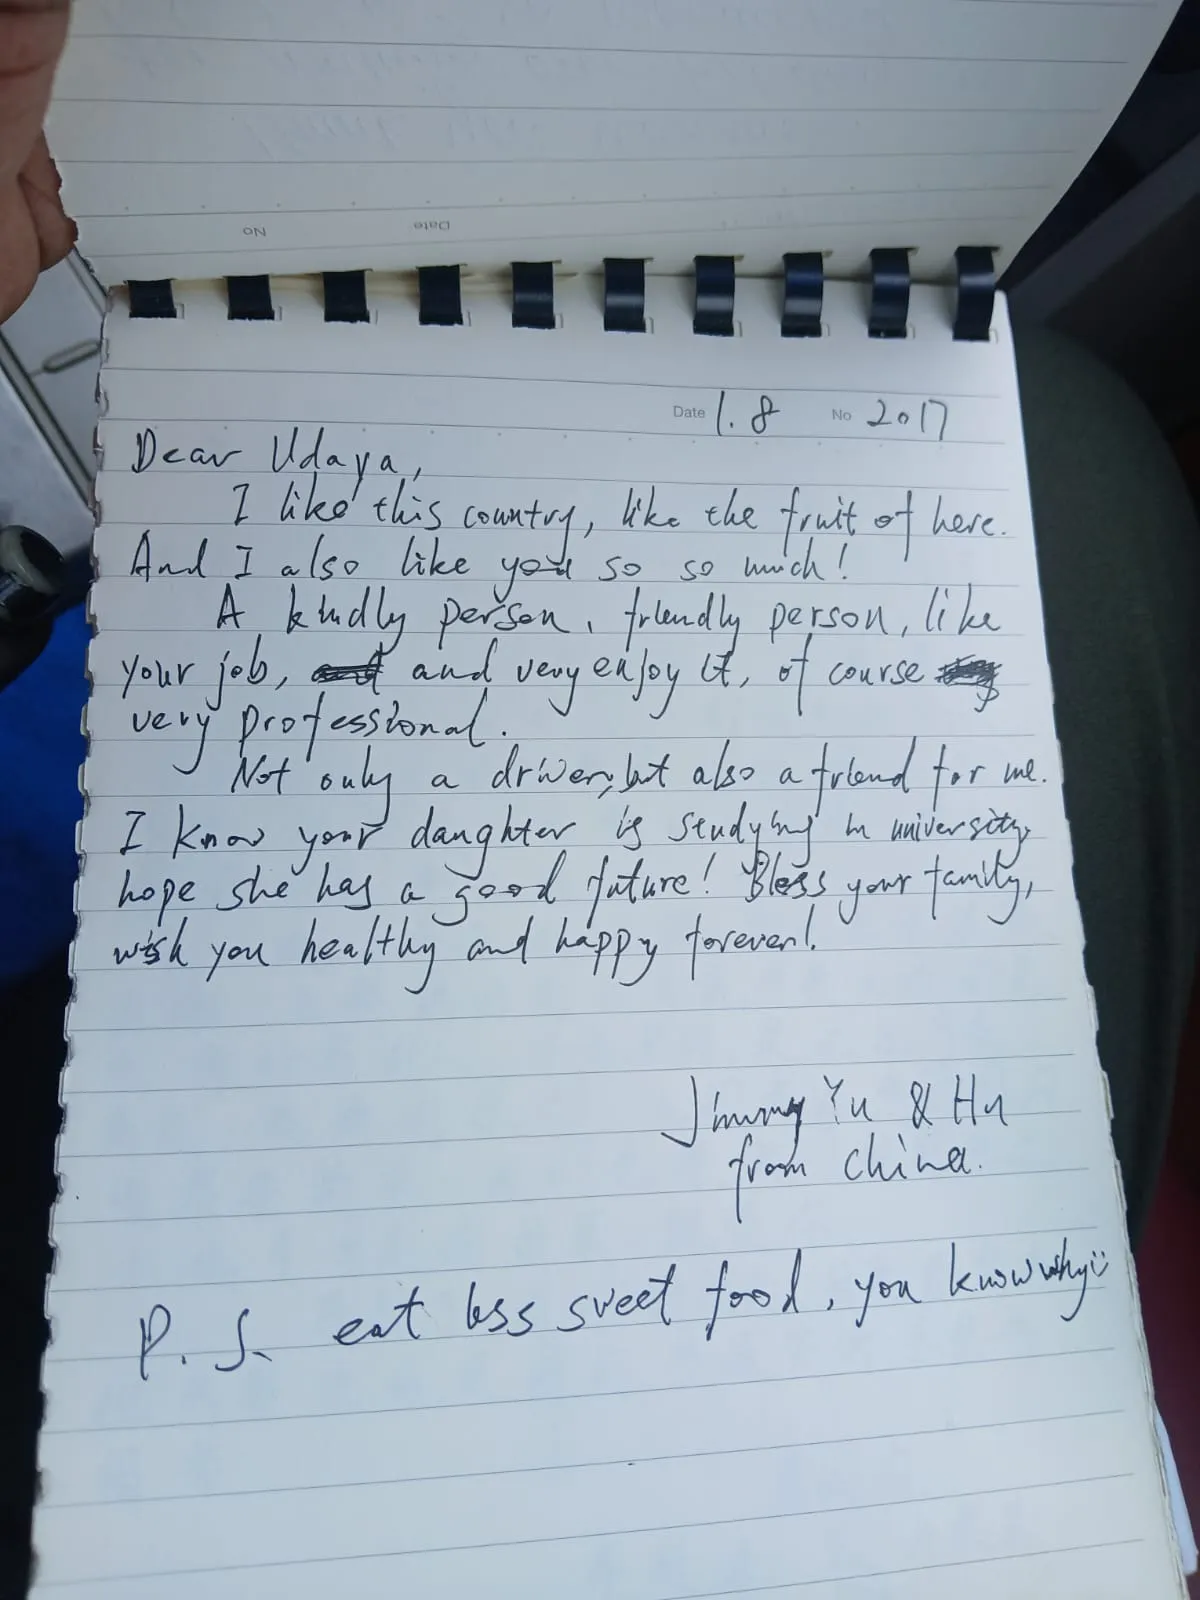 No Date
Date 1. 8 No 2017
Dear Udaya,
I like this country, like the fruit of here.
And I also like you so so much!
A kindly person, friendly person, like
your job, and very enjoy it, of course
very professional.
Not only a driver, but also a friend for me.
I know your daughter is studying in university,
hope she has a good future! Bless your family,
wish you healthy and happy forever!
Jimmy Yu & Hu
from China.
P. S. eat less sweet food, you know why